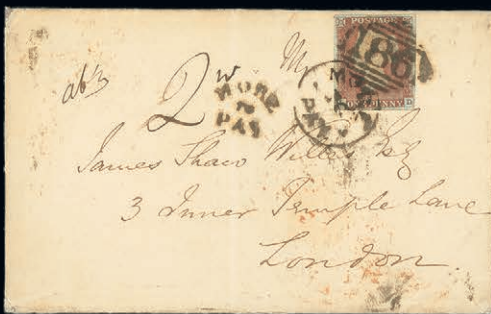 POSTAGE
186
ONE PENNY
2
MORE
PAY
James Shaw Willes Esq
3 Inner Temple Lane
London.